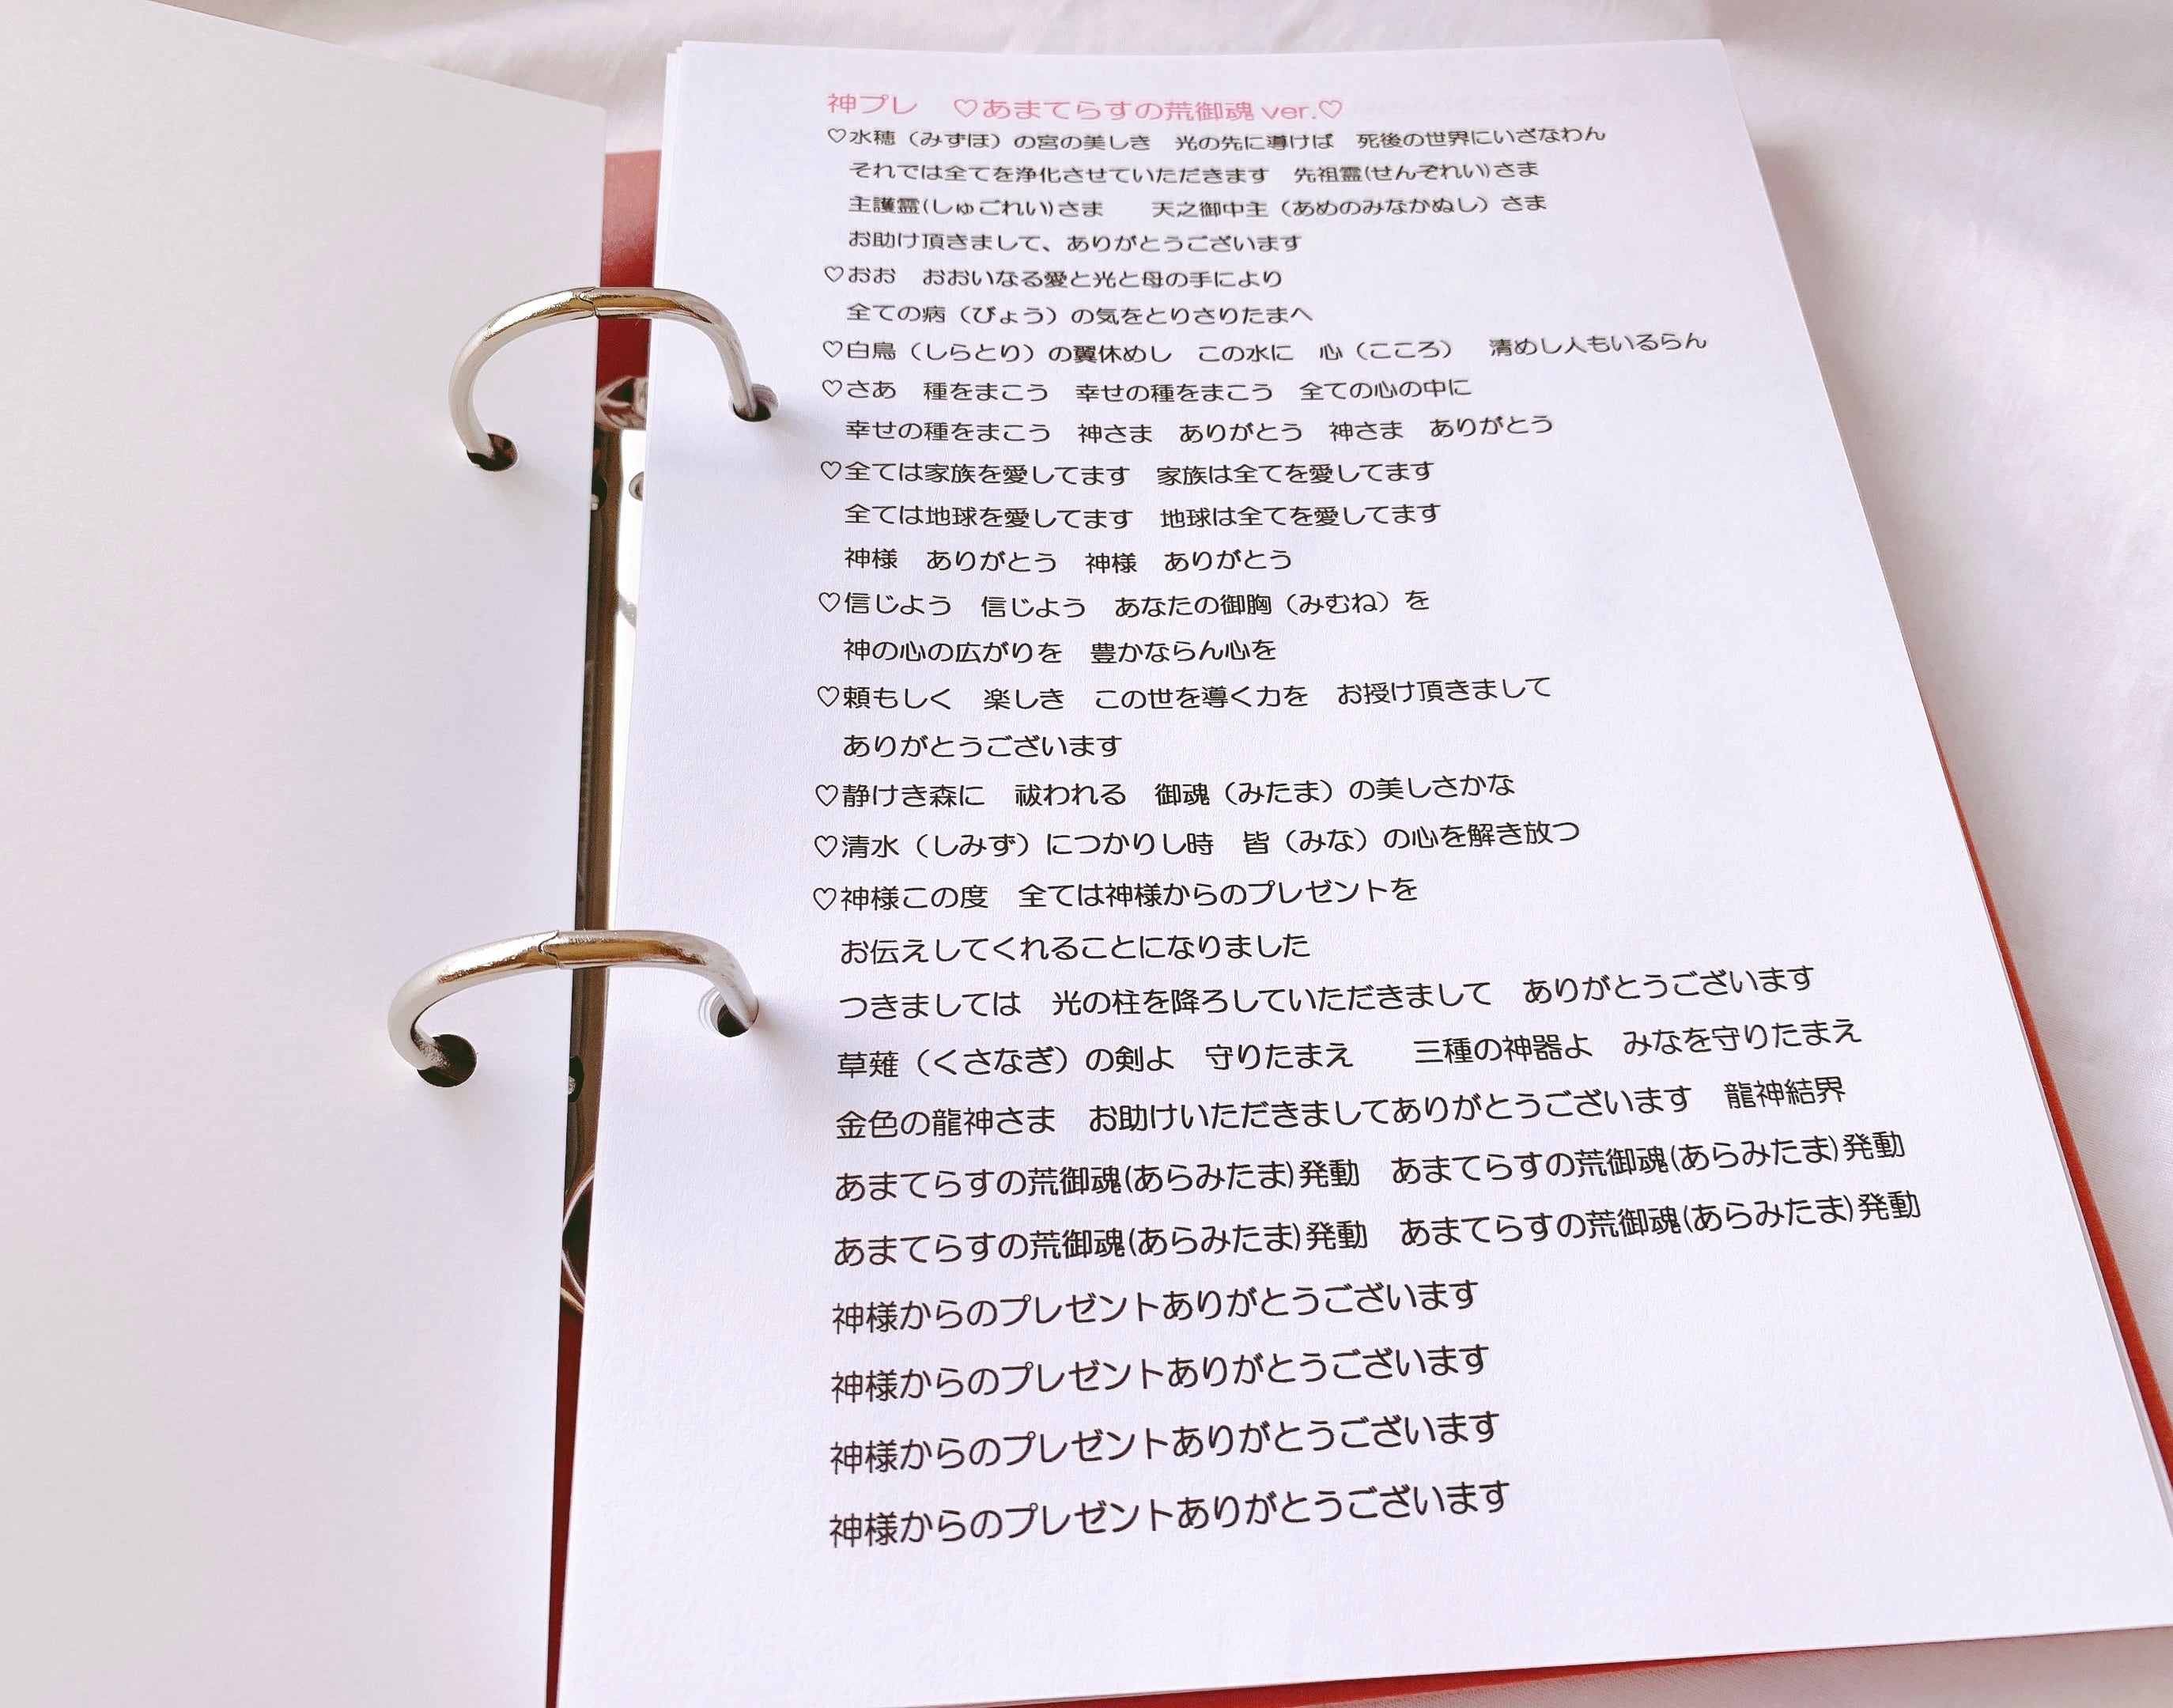 神プレ　♡あまてらすの荒御魂 ver.♡
♡水穂（みずほ）の宮の美しき　光の先に導けば　死後の世界にいざなわん
それでは全てを浄化させていただきます　先祖霊(せんぞれい)さま
主護霊(しゅごれい)さま　　天之御中主（あめのみなかぬし）さま
お助け頂きまして、ありがとうございます
♡おお　おおいなる愛と光と母の手により
全ての病（びょう）の気をとりさりたまへ
♡白鳥（しらとり）の翼休めし　この水に　心（こころ）　清めし人もいるらん
♡さあ　種をまこう　幸せの種をまこう　全ての心の中に
幸せの種をまこう　神さま　ありがとう　神さま　ありがとう
♡全ては家族を愛してます　家族は全てを愛してます
全ては地球を愛してます　地球は全てを愛してます
神様　ありがとう　神様　ありがとう
♡信じよう　信じよう　あなたの御胸（みむね）を
神の心の広がりを　豊かならん心を
♡頼もしく　楽しき　この世を導く力を　お授け頂きまして
ありがとうございます
♡静けき森に　祓われる　御魂（みたま）の美しさかな
♡清水（しみず）につかりし時　皆（みな）の心を解き放つ
♡神様この度　全ては神様からのプレゼントを
お伝えしてくれることになりました
つきましては　光の柱を降ろしていただきまして　ありがとうございます
草薙（くさなぎ）の剣よ　守りたまえ　　三種の神器よ　みなを守りたまえ
金色の龍神さま　お助けいただきましてありがとうございます　龍神結界
あまてらすの荒御魂(あらみたま)発動　あまてらすの荒御魂(あらみたま)発動
あまてらすの荒御魂(あらみたま)発動　あまてらすの荒御魂(あらみたま)発動
神様からのプレゼントありがとうございます
神様からのプレゼントありがとうございます
神様からのプレゼントありがとうございます
神様からのプレゼントありがとうございます